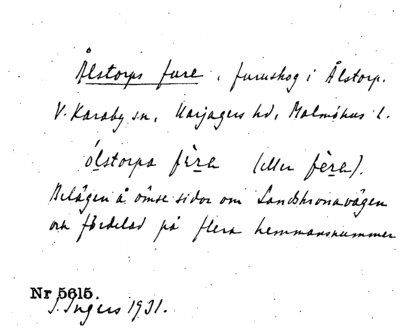 Ålstorps fure, furuskog i Ålstorp.
V. Karaby sn, Harjagers hd, Malmöhus l.
ólstorpa fèra (eller fèra).
Belägen å ömse sidor om Landskronavägen
och fördelad på flera hemmansnummer
Nr 5615.
I. Ingers 1931.